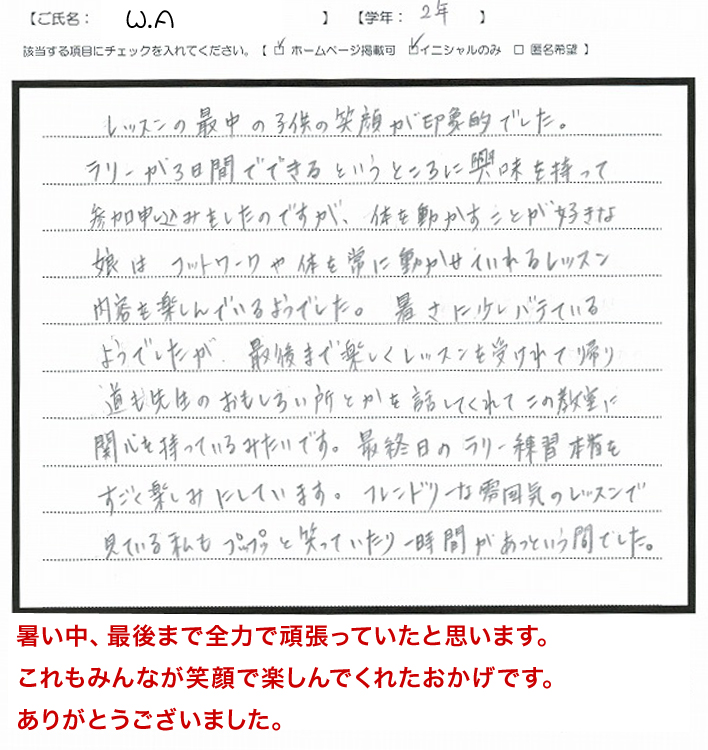 【ご氏名： W.A 】 【学年： 2年 】
該当する項目にチェックを入れてください。【 ☑ ホームページ掲載可 ☑ イニシャルのみ □ 匿名希望 】
レッスンの最中の子供の笑顔が印象的でした。
ラリーが3日間でできるというところに興味を持って
参加申し込みをしたのですが、体を動かすことが好きな
娘は フットワークや体を常に動かせていれるレッスン
内容を楽しんでいるようでした。 暑さに少しバテている
ようでしたが、最後まで楽しくレッスンを受けれて帰り
道も先生のおもしろい所とかを話してくれてこの教室に
関心を持っているみたいです。最終日のラリー練習 本当を
すごく楽しみにしています。フレンドリーな雰囲気のレッスンで
見ている私も プップッと笑っていたり一時間があっという間でした。
暑い中、最後まで全力で頑張っていたと思います。
これもみんなが笑顔で楽しんでくれたおかげです。
ありがとうございました。